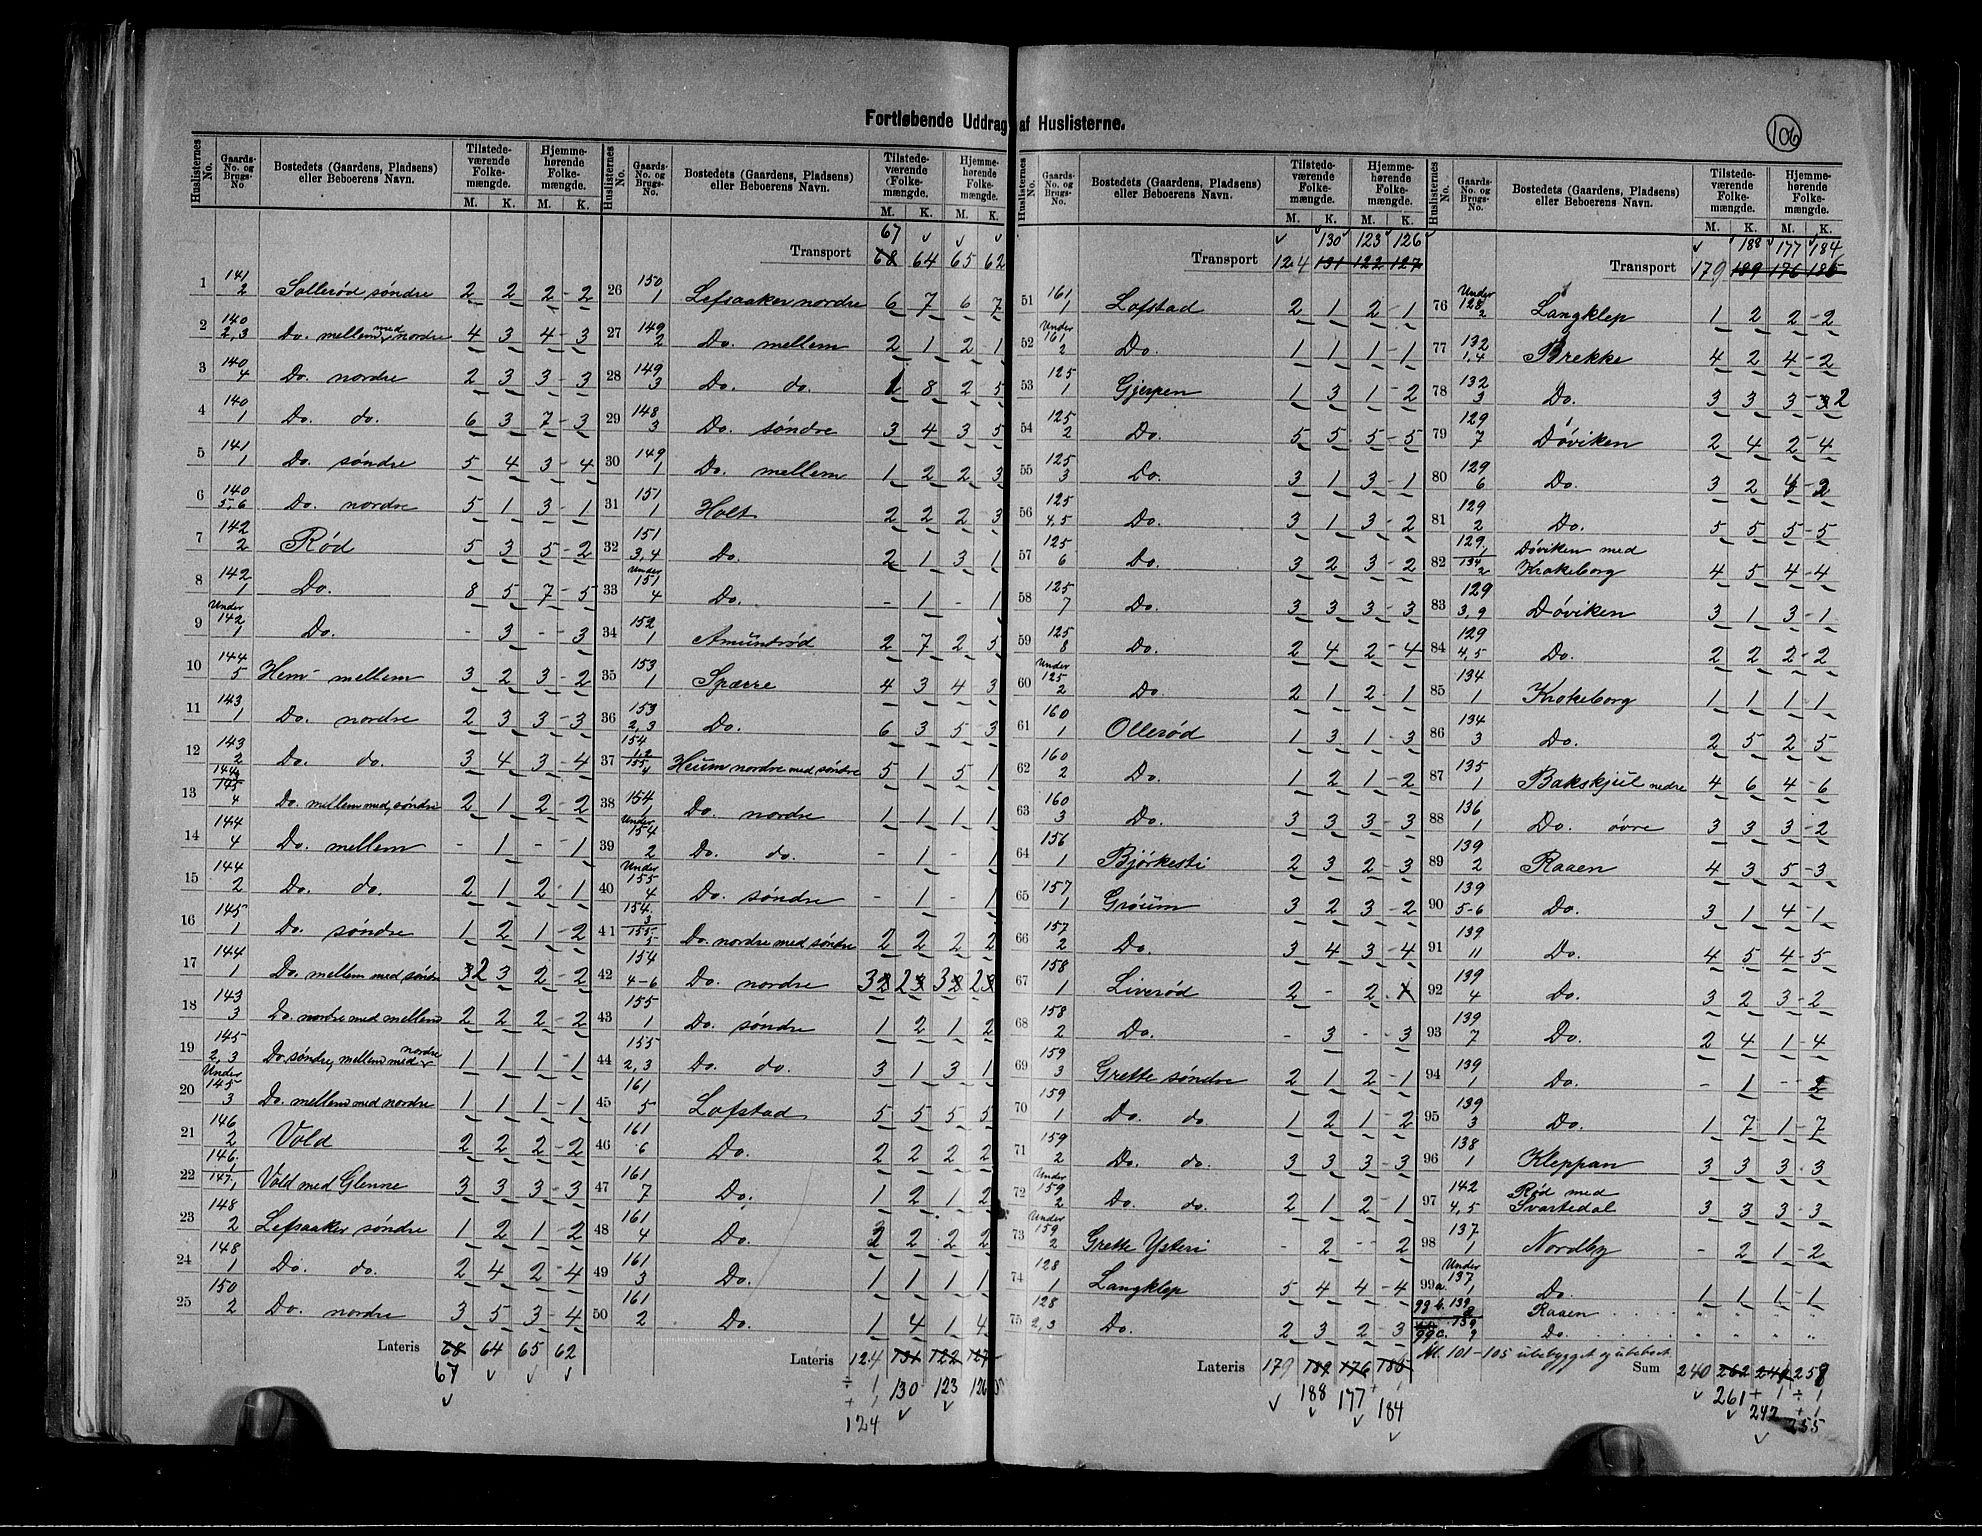 106
Fortløbende Uddrag af Huslisterne.
Huslisternes No. | Gaards-No. og Brugs-No. | Bostedets (Gaardens, Pladsens) eller Beboerens Navn. | Tilstede-værende Folke-mængde. M. K. | Hjemme-hørende Folke-mængde. M. K.
1 141/2 Sollerød søndre 2 2 2 - 2
2 140/2,3 Do. mellem med nordre 4 3 4 - 3
3 140/4 Do. nordre 2 3 3 - 3
4 140/1 Do. do. 6 3 7 - 3
5 141/1 Do. søndre 5 4 3 - 4
6 140/5,6 Do. nordre 5 1 3 - 1
7 142/2 Rød 5 3 5 - 2
8 142/1 Do. 8 5 7 - 5
9 Under 142/1 Do. - 3 - - 3
10 144/5 Hem mellem 3 2 3 - 2
11 143/1 Do. nordre 2 3 3 - 3
12 143/2 Do. do. 3 4 3 - 4
13 144/145/4 Do. mellem med søndre 2 1 2 - 2
14 144/4 Do. mellem - 1 - - 1
15 144/2 Do. do. 2 1 2 - 1
16 145/1 Do. søndre 1 2 1 - 2
17 144/1 Do. mellem med søndre 3 2 3 2 - 2
18 143/3 Do. nordre med mellem 2 2 2 - 2
19 145/2,3 Do. søndre, mellem med nordre 1 1 1 - 1
20 Under 145/3 Do. mellem med nordre 1 1 1 - 1
21 146/2 Vold 2 2 2 - 2
22 146/1 147/1 Vold med Glenne 3 3 3 - 3
23 148/2 Lefsaaker søndre 1 2 1 - 2
24 148/1 Do. do. 2 4 2 - 4
25 150/2 Do. nordre 3 5 3 - 4
Lateris 68 64 65 62
67
67
Transport 68 64 65 62
26 150/1 Lefsaaker nordre 6 7 6 7
27 149/2 Do. mellem 2 1 2 1
28 149/3 Do. do. 1 8 2 5
29 148/3 Do. søndre 3 4 3 5
30 149/1 Do. mellem 1 2 2 3
31 151/1 Holt 2 2 2 3
32 151/3,4 Do. 2 1 3 1
33 Under 151/4 Do. - 1 - 1
34 152/1 Amuntrød 2 7 2 5
35 153/1 Spærre 4 3 4 3
36 153/2,3 Do. 6 3 5 3
37 154/1,2 155/4 Heum nordre med søndre 5 1 5 1
38 154/1 Do. nordre 1 1 1 1
39 Under 154/2 Do. do. - 1 - 1
40 Under 155/4 Do. søndre - 1 - 1
41 154/3 155/5 Do. nordre med søndre 2 2 2 2
42 154/4-6 Do. nordre 3 2 2 3 3 2 2 3
43 155/1 Do. søndre 1 2 1 2
44 155/2,3 Do. do. 3 1 3 1
45 161/5 Lofstad 5 5 5 5
46 161/6 Do. 2 2 2 2
47 161/7 Do. 1 2 1 2
48 161/4 Do. 2 2 2 2
49 161/3 Do. 1 1 1 1
50 161/2 Do. 1 4 1 4
Lateris 124 131 122 127
÷ 1 130 123 126
+ 1
124
Huslisternes No. | Gaards-No. og Brugs-No. | Bostedets (Gaardens, Pladsens) eller Beboerens Navn. | Tilstede-værende Folke-mængde. M. K. | Hjemme-hørende Folke-mængde. M. K.
130 123 126
Transport 124 131 122 127
51 161/1 Lofstad 2 1 2 - 1
52 Under 161/2 Do. 1 1 1 - 1
53 125/1 Gjerpen 1 3 1 - 2
54 125/2 Do. 5 5 5 - 5
55 125/3 Do. 3 1 3 - 1
56 125/4,5 Do. 3 1 3 - 2
57 125/6 Do. 3 2 3 - 2
58 125/7 Do. 3 3 3 - 3
59 125/8 Do. 2 4 2 - 4
60 Under 125/2 Do. 2 1 2 - 1
61 160/1 Ollerød 1 3 1 - 3
62 160/2 Do. 1 2 1 - 2
63 160/3 Do. 3 3 3 - 3
64 156/1 Bjørkesti 2 3 2 - 3
65 157/1 Grøum 3 2 3 - 2
66 157/2 Do. 3 4 3 - 4
67 158/1 Liverød 2 - 2
68 158/2 Do. - 3 - - 3
69 159/3 Grette søndre 2 1 2 - 1
70 159/1 Do. do. 1 2 1 - 2
71 159/2 Do. do. 3 3 3 - 3
72 Under 159/2 Do. do. 2 1 2 - 1
73 Under 159/2 Grette Ysteri - 2 - - 2
74 128/1 Langklep 5 4 4 - 4
75 128/2,3 Do. 2 3 2 - 3
Lateris 179 189 176 185
188 177 + 1
184
188 177 184
Transport 179 189 176 185
76 Under 128/2 Langklep 1 2 2 - 2
77 132/1,4 Brekke 4 2 4 - 2
78 132/3 Do. 3 3 3 - 3 2
79 129/7 Døviken 2 4 2 - 4
80 129/6 Do. 3 2 4 - 2
81 129/2 Do. 5 5 5 - 5
82 129/1 134/2 Døviken med Krokeborg 4 5 4 - 4
83 129/3,9 Døviken 3 1 3 - 1
84 129/4,5 Do. 2 2 2 - 2
85 134/1 Krokeborg 1 1 1 - 1
86 134/3 Do. 2 5 2 - 5
87 135/1 Bakskjul nedre 4 6 4 - 6
88 136/1 Do. øvre 3 3 3 - 2
89 139/2 Raaen 4 3 5 - 3
90 139/5-6 Do. 3 1 4 - 1
91 139/11 Do. 4 5 4 - 5
92 139/4 Do. 3 2 3 - 2
93 139/7 Do. 2 4 1 - 4
94 139/1 Do. - 1 - - 2
95 139/3 Do. 1 7 1 - 7
96 138/1 Kleppan 3 3 3 - 3
97 142/4,5 Rød med Svartedal 3 3 3 - 3
98 137/1 Nordby - 2 1 - 2
99a. Under 137/1 Do. 1 1 1 - 1
99 b. 139/8 Raaen . . . . " " " "
99c. 139/9 Do. . . . . . " " " "
Nl. 101-105 ubebygget og ubeboet
Sum 240 262 241 258
261 + 1 ÷ 1
242 + 1
255